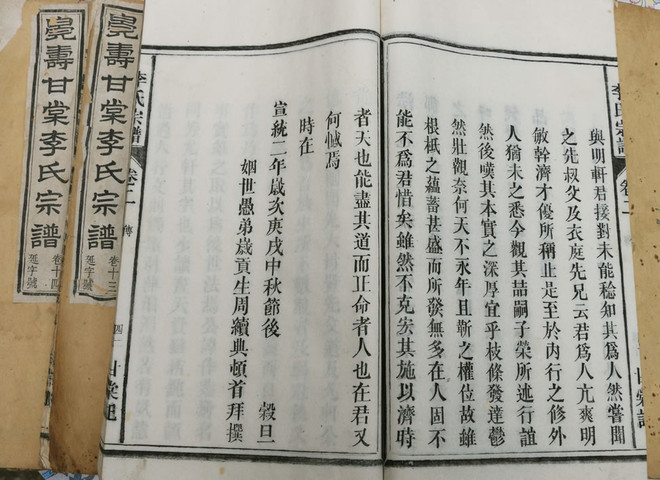 李氏宗譜
卷二
甘棠
與明軒君接對未能稔知其爲人然嘗聞
之先叔父及衣庭先兄云君爲人亢爽明
敏幹濟才優所稱止是至於內行之修外
人猶未之悉今觀其喆嗣子榮所述行誼
然後嘆其本實之深厚宜乎枝條發達鬱
然壯觀奈何天不永年且靳之權位故雖
根柢之蘊蓄甚盛而所發無多在人固不
能不爲君惜矣雖然不克宏其施以濟時
者天也能盡其道而正命者人也在君又
何憾焉
時在
宣統二年歲次庚戌中秋節後 穀旦
姻世愚弟歲貢生周續典頓首拜撰
李氏宗譜
卷二
傳
甘棠
壽甘棠李氏宗譜
卷十三
延字號
壽甘棠李氏宗譜
卷十四
延字號